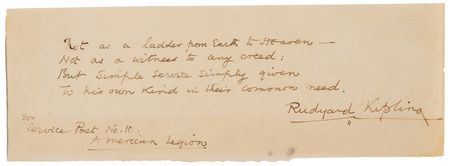 Not as a ladder from Earth to Heaven —
Not as a witness to any creed:
But Simple Service Simply given
To his own Kind in their common need.
Rudyard Kipling
For
Service Post No. 10.
American Legion